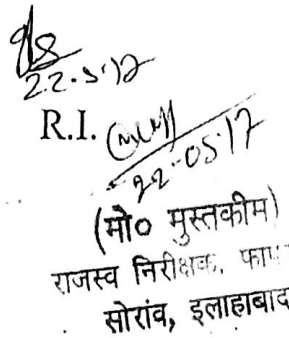 22.5.17
R.I.
22-05-17
(मो० मुस्तकीम)
राजस्व निरीक्षक,
सोरांव, इलाहाबाद